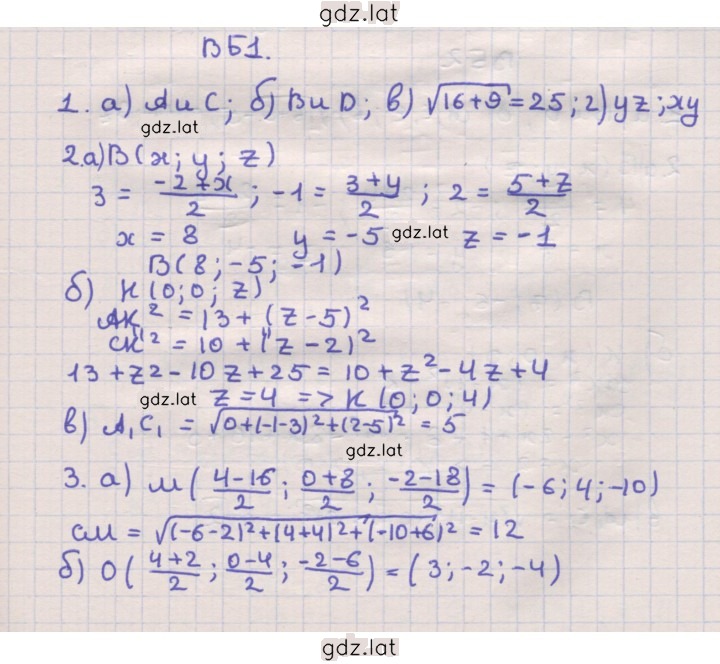 gdz.lat
ВБ1.
1. а) А и С; б) В и D; в) √16+9 = 25; г) yz; xy
gdz.lat
2.а) В(x; y; z)
3 = (-2+x)/2; -1 = (3+y)/2; 2 = (5+z)/2
x = 8 y = -5 gdz.lat z = -1
В(8; -5; -1)
б) К(0; 0; z)
АК² = 13 + (z-5)²
СК² = 10 + (z-2)²
13 + z2 - 10z + 25 = 10 + z² - 4z + 4
gdz.lat z = 4 => К(0; 0; 4)
в) А₁С₁ = √0+(-1-3)²+(2-5)² = 5
gdz.lat
3. а) М((4-16)/2; (0+8)/2; (-2-18)/2) = (-6; 4; -10)
СМ = √(-6-2)²+(4+4)²+(-10+6)² = 12
б) О((4+2)/2; (0-4)/2; (-2-6)/2) = (3; -2; -4)
gdz.lat